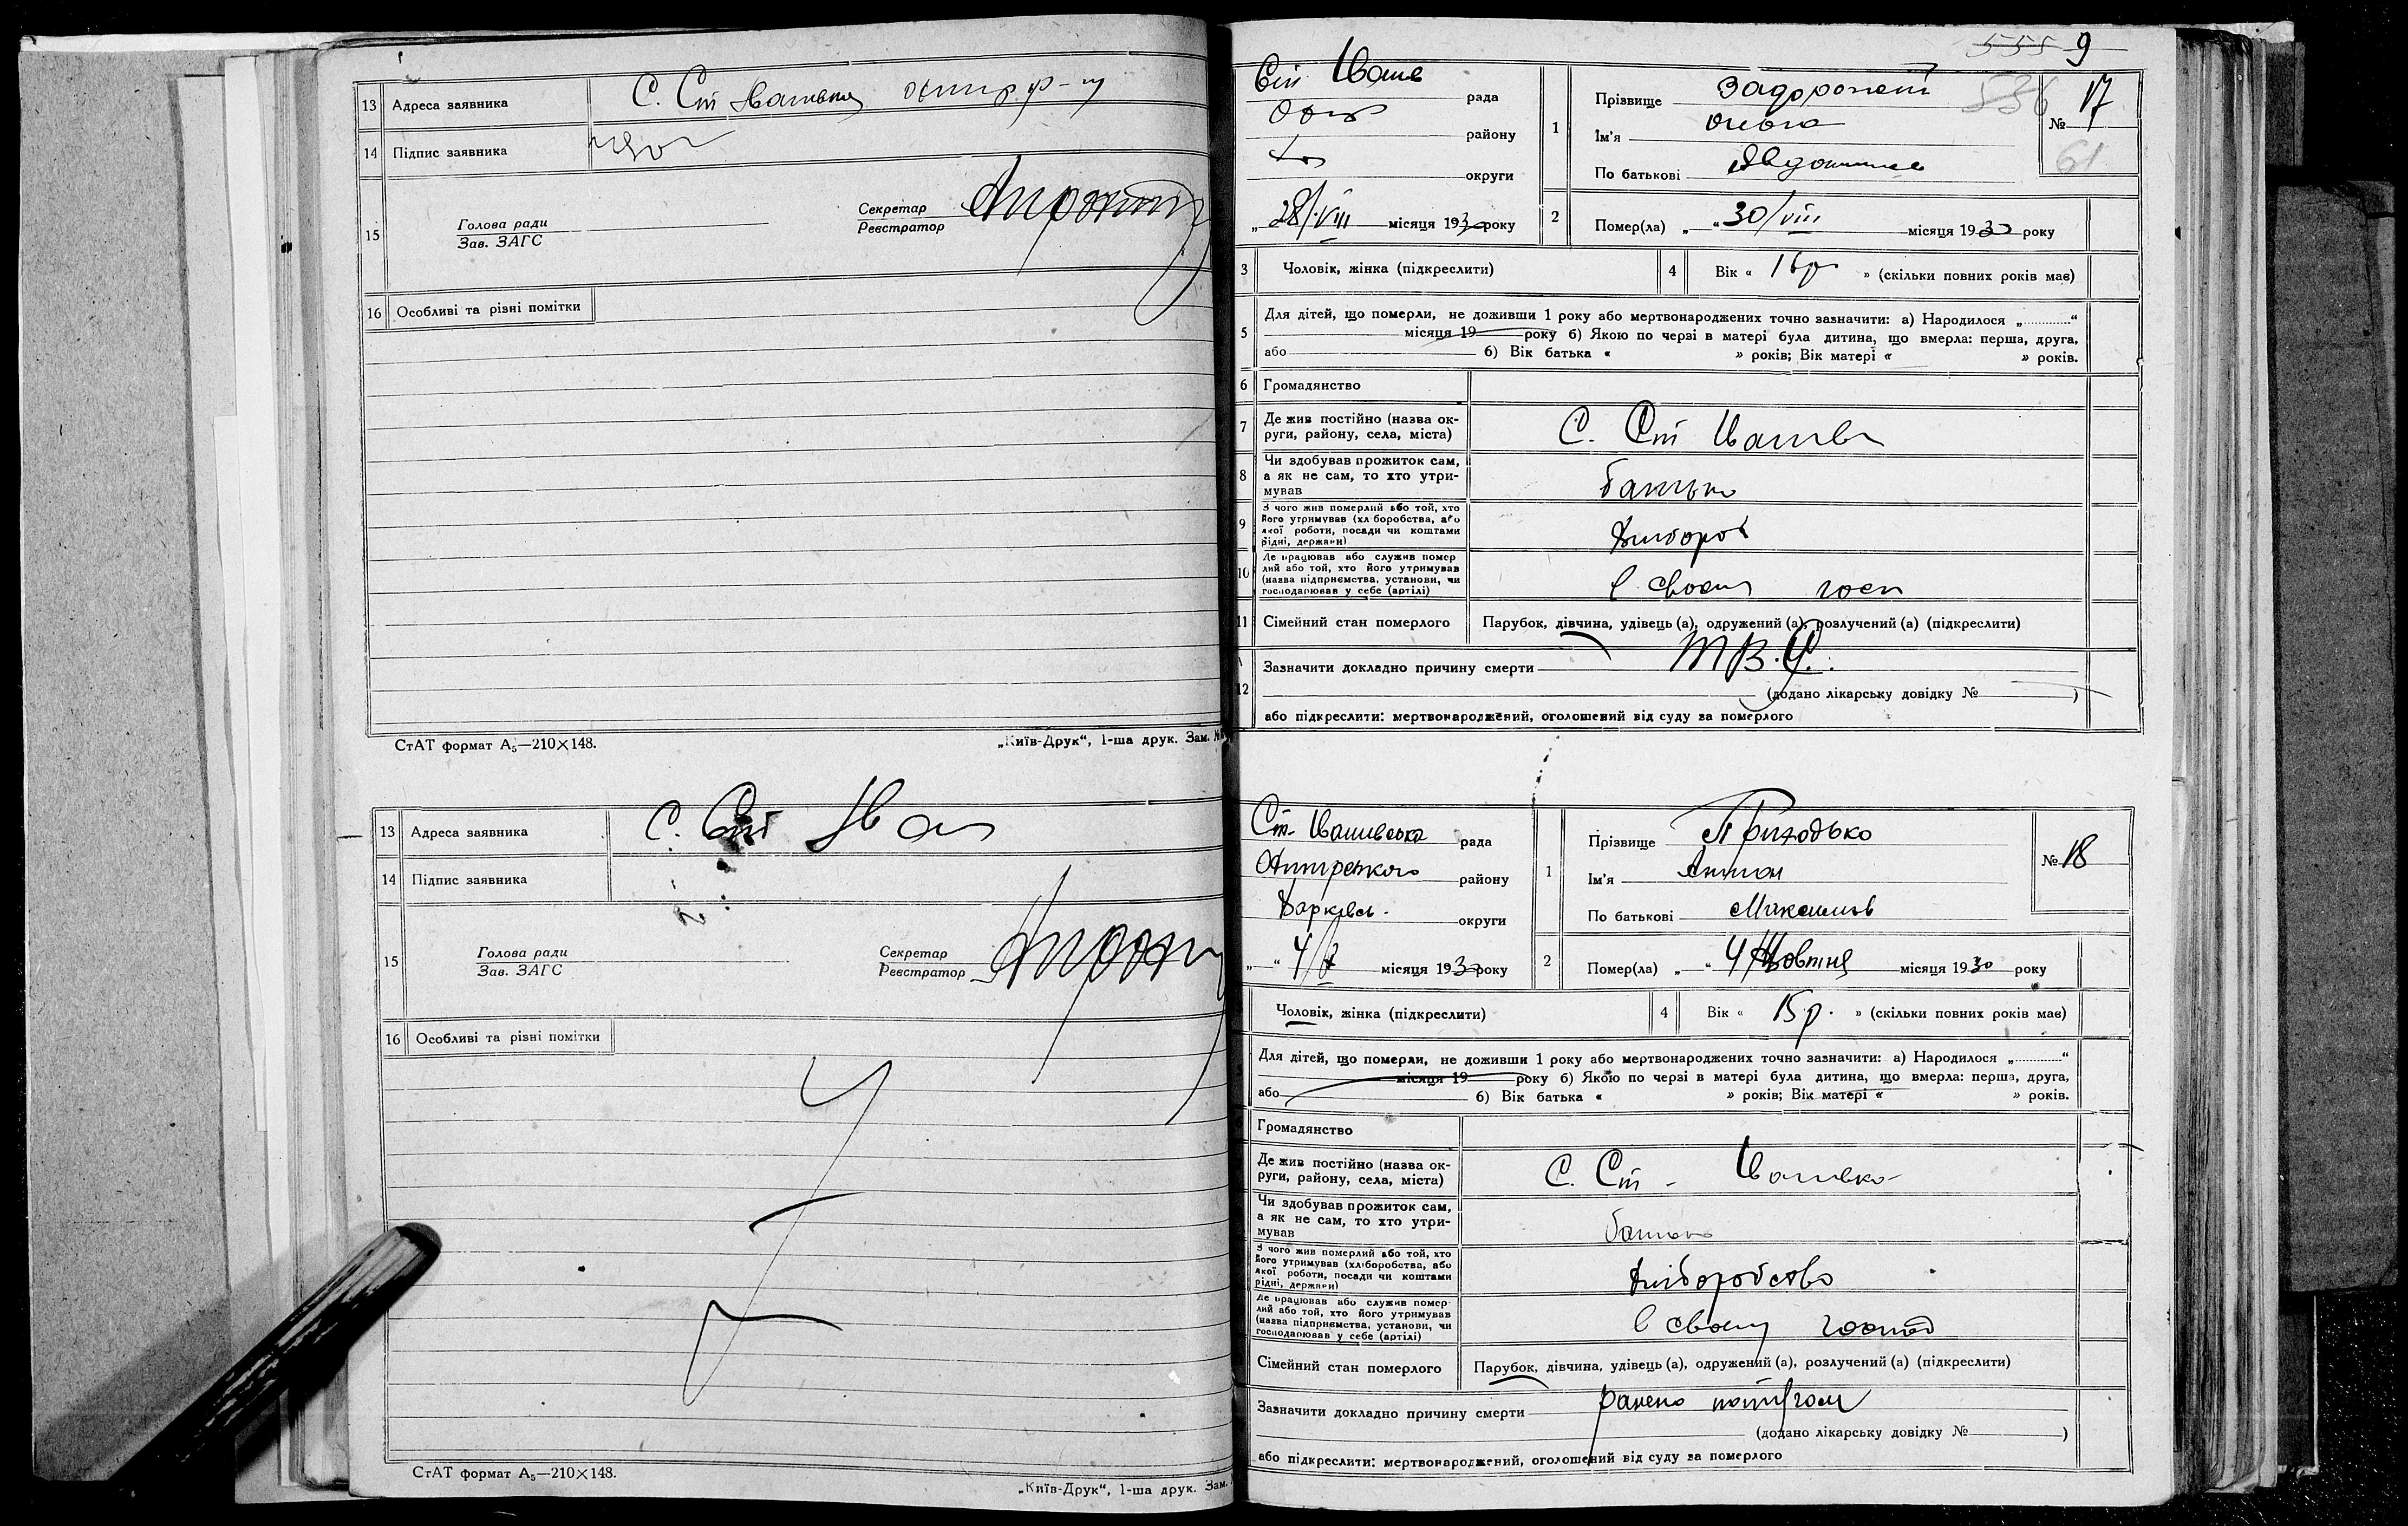 13 Адреса заявника С. Ст
14 Підпис заявника
15 Голова ради
Зав. ЗАГС
Секретар
Реєстратор
16 Особливі та різні помітки
СтАТ формат А₅—210×148.
„Київ-Друк“, 1-ша друк. Зам. №
13 Адреса заявника С. Ст Ив
14 Підпис заявника
15 Голова ради
Зав. ЗАГС
Секретар
Реєстратор
16 Особливі та різні помітки
СтАТ формат А₅—210×148.
„Київ-Друк“, 1-ша друк. Зам.
555 9
556
рада
району
округи
„ 28/VIII місяця 1930 року
1 Прізвище
Ім'я Ольга
По батькові
№ 17
61
2 Помер(ла) „ “ 30/VIII місяця 1930 року
3 Чоловік, жінка (підкреслити)
4 Вік « 16р » (скільки повних років має)
5 Для дітей, що померли, не доживши 1 року або мертвонароджених точно зазначити: а) Народилося „............“
місяця 19 року б) Якою по черзі в матері була дитина, що вмерла: перша, друга,
або б) Вік батька « » років; Вік матері « » років.
6 Громадянство
7 Де жив постійно (назва ок-
руги, району, села, міста) С. Ст
8 Чи здобував прожиток сам,
а як не сам, то хто утри-
мував батько
9 З чого жив померлий або той, хто
його утримував (хліборобства, або
якої роботи, посади чи коштами
рідні, держави) Хлібороб
10 Де працював або служив помер
лий або той, хто його утримував
(назва підприємства, установи, чи
господарював у себе (артілі) В своєму госп
11 Сімейний стан померлого Парубок, дівчина, удівець (а), одружений (а), розлучений (а) (підкреслити)
12 Зазначити докладно причину смерти ТВ.С.
(додано лікарську довідку № )
або підкреслити: мертвонароджений, оголошений від суду за померлого
рада
району
Харківсь. округи
„ “ місяця 1930 року
1 Прізвище Приходько
Ім'я Антон
По батькові Максимов
№ 18
2 Помер(ла) „ “ 4 Жовтня місяця 1930 року
Чоловік, жінка (підкреслити)
4 Вік « 15 р. » (скільки повних років має)
Для дітей, що померли, не доживши 1 року або мертвонароджених точно зазначити: а) Народилося „............“
місяця 19 року б) Якою по черзі в матері була дитина, що вмерла: перша, друга,
або б) Вік батька « » років; Вік матері « » років.
Громадянство
Де жив постійно (назва ок-
руги, району, села, міста) С. Ст -
Чи здобував прожиток сам,
а як не сам, то хто утри-
мував батько
З чого жив померлий або той, хто
його утримував (хліборобства, або
якої роботи, посади чи коштами
рідні, держави) Хліборобство
Де працював або служив помер
лий або той, хто його утримував
(назва підприємства, установи, чи
господарював у себе (артілі) В своєму
Сімейний стан померлого Парубок, дівчина, удівець (а), одружений (а), розлучений (а) (підкреслити)
Зазначити докладно причину смерти ранено
(додано лікарську довідку № )
або підкреслити: мертвонароджений, оголошений від суду за померлого